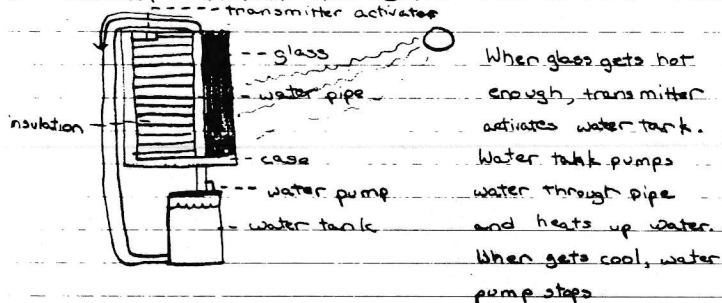 transmitter activates
glass
water pipe
insulation
case
water pump
water tank
When glass gets hot
enough, transmitter
activates water tank.
Water tank pumps
water through pipe
and heats up water.
When gets cool, water
pump stops